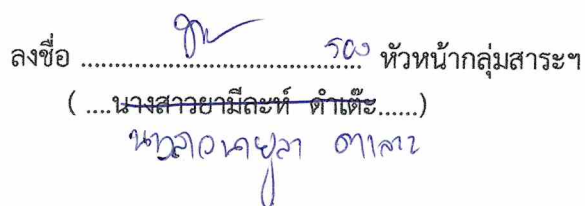 ลงชื่อ ........................................ รอง หัวหน้ากลุ่มสาระฯ
( ....นางสาวยามีละห์ ดำเต๊ะ......)
นางสาว